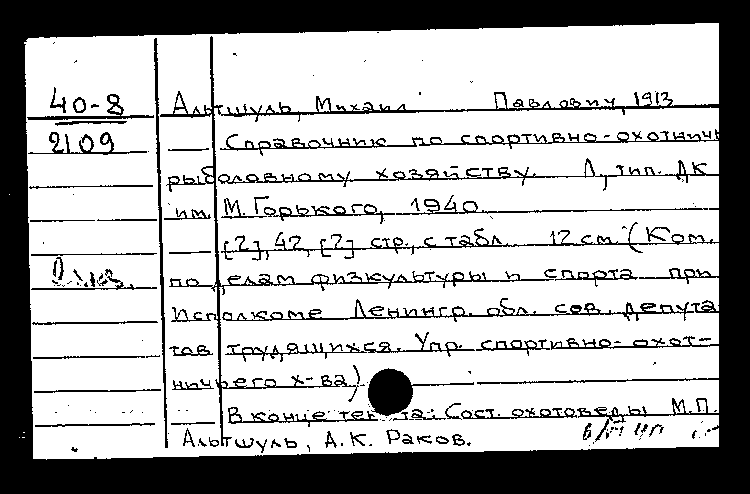 40-8 Альтшуль, Михаил Павлович, 1913
2109 Справочник по спортивно-охотничь
рыболовному хозяйству. Л, тип. ДК
им. М. Горького, 1940.
[2], 42, [2] стр., с табл 12 см (Ком.
по делам физкультуры и спорта при
Исполкоме Ленингр. обл. сов. депута
тов трудящихся. Упр. спортивно-охот-
ничьего х-ва)
В конце текста: Сост. охотоведы М.П.
Альтшуль, А.К. Раков.